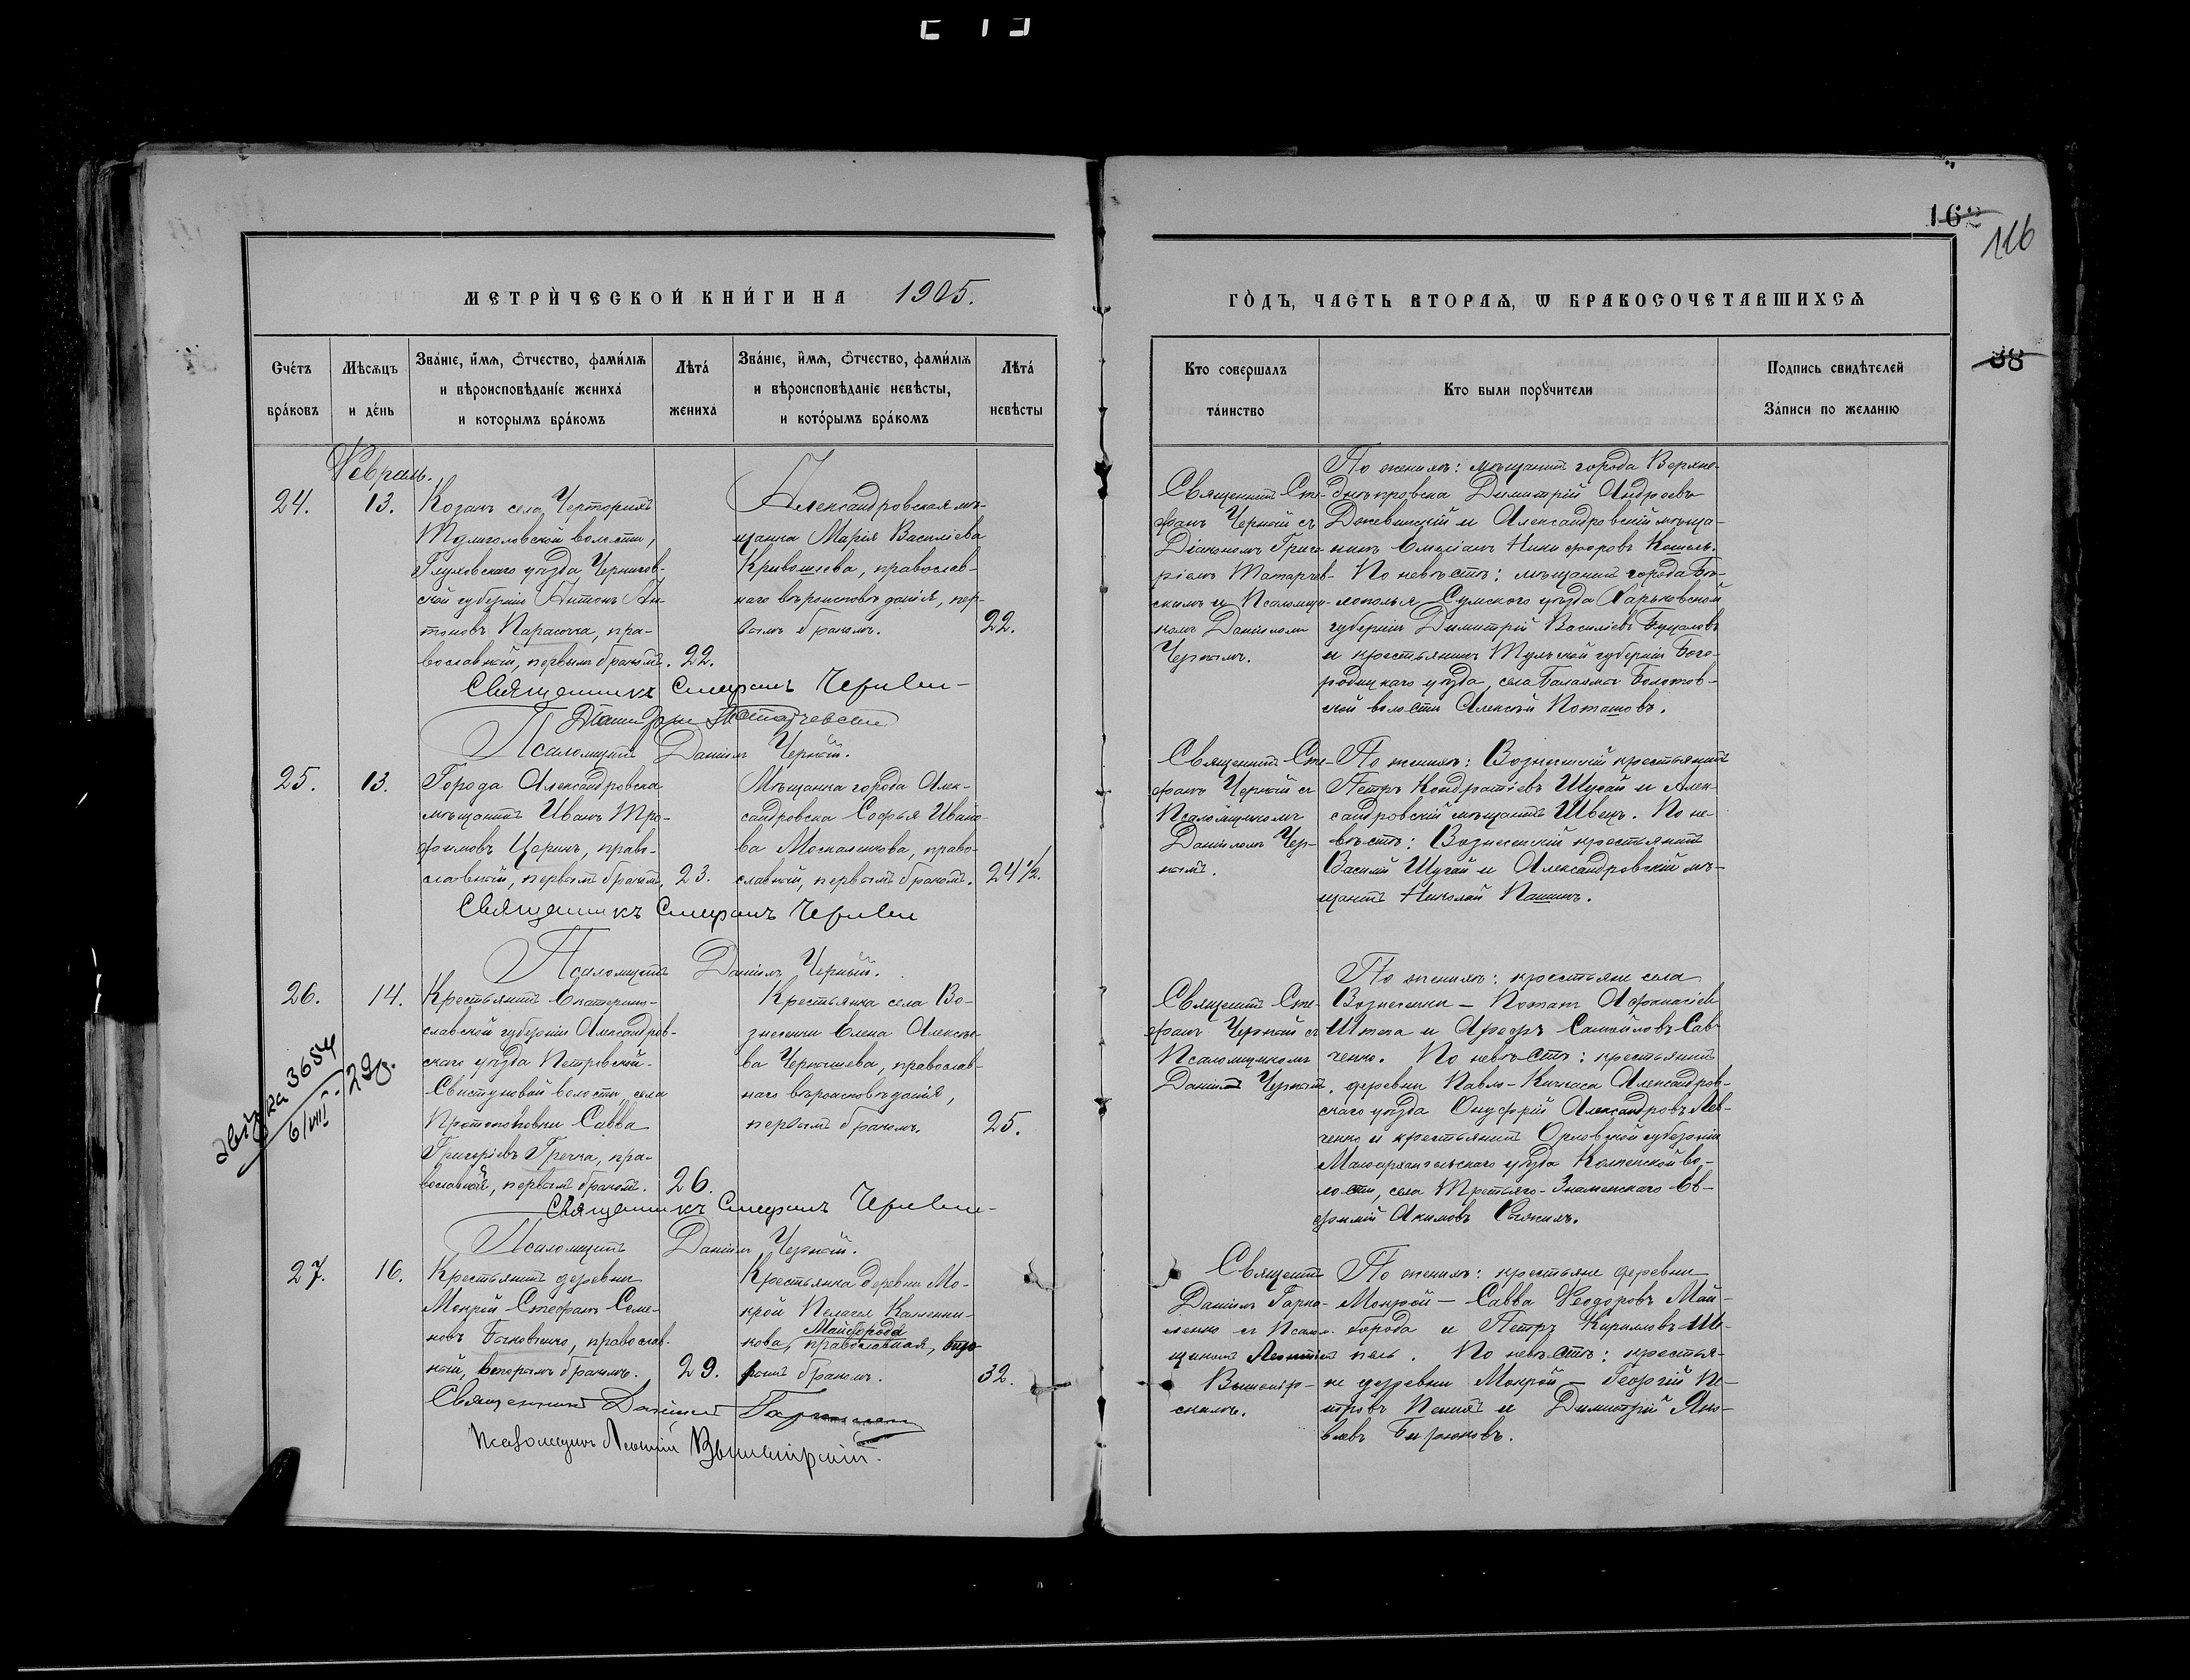 162
116
МЕТРИ́ЧЕСКОЙ КНИ́ГИ НА 1905.
ГО́ДЪ, ЧАСТЬ ВТОРАѦ, Ѡ БРАКОСОЧЕТАВШИХСѦ
38
Сче́тъ бра́ковъ
Мѣсѧцъ и де́нь
Зва́нїе, и҆́мѧ, ѻ҆́тчество, фами́лїѧ и вѣроисповѣ́данїе жениха̀ и которымъ бра́комъ
Лѣта̀ жениха̀
Зва́нїе, и҆́мѧ, ѻ҆́тчество, фами́лїѧ и вѣроисповѣ́данїе невѣсты, и кото́рымъ бра́комъ
Лѣта̀ невѣсты
Кто совершалъ та́инство
Кто были порꙋчители
Подпись свидѣтелей За́писи по желанїю
Февраль.
24.
13.
Козакъ села Черторигъ
Тулиголовской волости,
Глуховскаго уѣзда Чернигов-
ской губерніи Антонъ Ан-
тоновъ Парасочка, пра-
вославный, первымъ бракомъ.
22.
Александровская мѣ-
щанка Марія Василіева
Кривошеева, православ-
наго вѣроисповѣданія, пер-
вымъ бракомъ.
22.
Священникъ Сте-
фанъ Черный съ
Діакономъ Григо-
ріемъ Татарчев-
скимъ и Псаломщи-
комъ Даніиломъ
Чернымъ.
По женихѣ: мѣщанинъ города Верхне-
днѣпровска Димитрій Андреевъ
и Александровскій мѣща-
нинъ Емеліанъ Никифоровъ Кошель.
По невѣстѣ: мѣщанинъ города Бѣ-
лополья Сумского уѣзда Харьковской
губерніи Димитрій Василіевъ
и крестьянинъ Тульской губерніи Бого-
родицкаго уѣзда, села
ской волости Алексѣй Поташовъ.
Священникъ Стефанъ Черный
Псаломщикъ Даніилъ Черный.
25.
13.
Города Александровска
мѣщанинъ Иванъ Тро-
фимовъ Царикъ, право-
славный, первымъ бракомъ,
23.
Мѣщанка города Алек-
сандровска Софья Ивано-
ва Москаленкова, право-
славный, первымъ бракомъ.
24½.
Священникъ Сте-
фанъ Черный съ
Псаломщикомъ
Даніиломъ Чер-
нымъ.
По женихѣ: Вознесенскій крестьянинъ
Петръ Кондратіевъ Шугай и Алек-
сандровскій мѣщанинъ Швецъ. По не-
вѣстѣ: Вознесенскій крестьянинъ
Василій Шугай и Александровскій мѣ-
щанинъ Николай Пашинъ.
Священникъ Стефанъ Черный
Псаломщикъ Даніилъ Черный.
26.
14.
Крестьянинъ Екатерино-
славской губерніи Александров-
скаго уѣзда Петровской-
Свистуновой волости, села
Протопоповки Савва
Григоріевъ Гречка, пра-
вославный, первымъ бракомъ.
26.
Крестьянка села Во-
знесенки Елена Алексѣе-
ва Чернышева, православ-
наго вѣроисповѣданія,
первымъ бракомъ.
25.
Священникъ Сте-
фанъ Черный съ
Псаломщикомъ
Даніилъ Чернымъ.
По женихѣ: крестьяне села
Вознесенки – Потапъ Афанасіевъ
и Самойловъ Сав-
ченко. По невѣстѣ: крестьянинъ
деревни Павло-Кичкаса Александров-
скаго уѣзда Онуфрій Александровъ Лев-
ченко и крестьянинъ Орловской губерніи
Малоархангельскаго уѣзда Колпенской во-
лости, села Третьяго-Знаменскаго Ев-
фимій Акимовъ
Священникъ Стефанъ Черный
Псаломщикъ Даніилъ Черный.
27.
16.
Крестьянинъ деревни
Мокрой Стефанъ Семе-
новъ Быковченко, православ-
ный, вторымъ бракомъ.
29.
Крестьянка деревни Мо-
крой Пелагея Калинни-
Майборода
кова, православная, вто-
рымъ бракомъ.
32.
Священникъ
Даніилъ Гарка-
ленко съ Псалом-
щикомъ Леонтіемъ
Вышемір-
скимъ.
По женихѣ: крестьяне деревни
Мокрой – Савва Ѳеодоровъ Май-
борода и Петръ Кирилловъ Ше-
пель. По невѣстѣ: крестья-
не деревни Мокрой – Георгій Пе-
тровъ и Димитрій Яко-
влевъ Бирюковъ.
Священникъ Даніилъ
Псаломщикъ Леонтій Вышемірскій.
3654
6/VIII